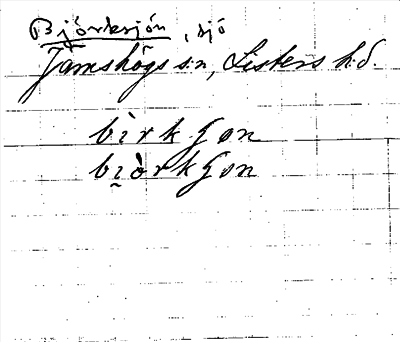 Björksjön, sjö
Jämshögs sn, Listers hd.
bìrkʃøn
bi̯òrkʃøn